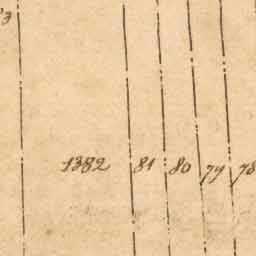 1382 81 80 79 78